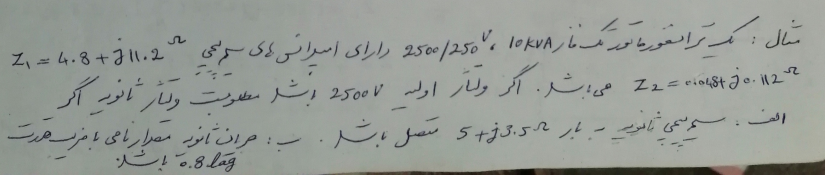 مثال : یک ترانسفورماتور تک فاز 10kVA ، 2500/250V دارای امپدانس های سیم پیچی Z1 = 4.8 + j11.2 Ω
Z2 = 0.048 + j0.112 Ω می باشد. اگر ولتاژ اولیه 2500V باشد مطلوبست ولتاژ ثانویه اگر
الف : سیم پیچی ثانویه به بار 5 + j3.5 Ω متصل باشد. ب : جریان ثانویه مقدار نامی با ضریب قدرت
0.8 lag باشد.